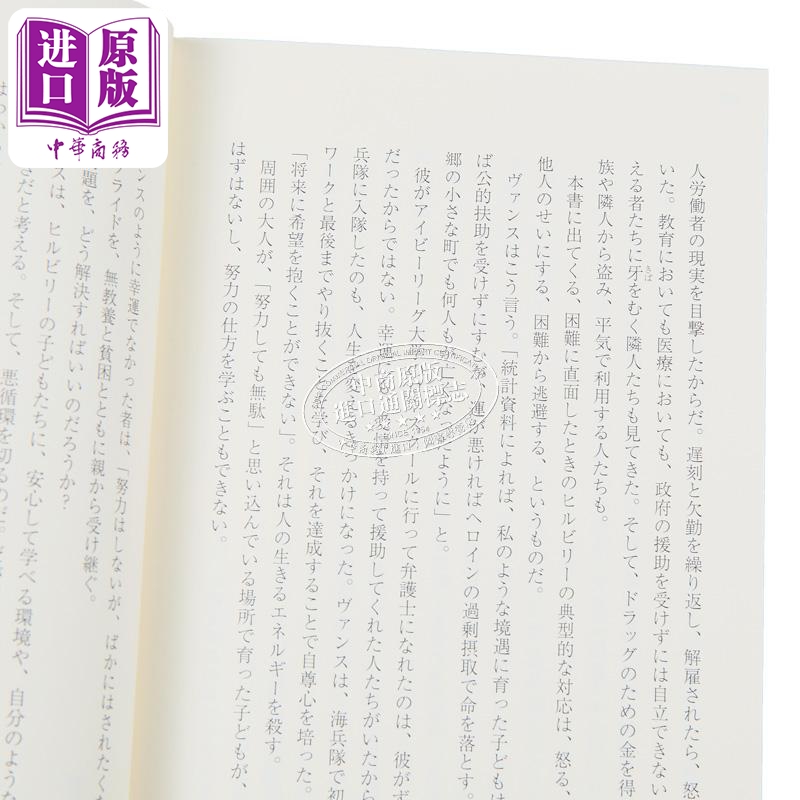 进口原版
中华商务
人労働者の現実を目撃したからだ。遅刻と欠勤を繰り返し、解雇されたら、怒
いた。教育においても医療においても、政府の援助を受けずには自立できない
える者たちに牙をむく隣人たちも見てきた。そして、ドラッグのための金を得
きば
族や隣人から盗み、平気で利用する人たちも。
本書に出てくる、困難に直面したときのヒルビリーの典型的な対応は、怒る、
他人のせいにする、困難から逃避する、というものだ。
ヴァンスはこう言う。「統計資料によれば、私のような境遇に育った子どもは
ば公的扶助を受けずにすむが、運が悪ければヘロインの過剰摂取で命を落とす。
郷の小さな町でも何人もなったように」と。
彼がアイビーリーグ大学のスクールに行って弁護士になれたのは、彼がず
だったからではない。幸運に愛情を持って援助してくれた人たちがいたから
兵隊に入隊したのも、人生を変えるきっかけになった。ヴァンスは、海兵隊で初
ワークと最後までやり抜くことを学び、それを達成することで自尊心を培った。
「将来に希望を抱くことができない」。それは人の生きるエネルギーを殺す。
周囲の大人が、「努力しても無駄」と思い込んでいる場所で育った子どもが、
はずはないし、努力の仕方を学ぶこともできない。
ンスのように幸運でなかった者は、「努力はしないが、ばかにはされたくな
プライドを、無教養と貧困とともに親から受け継ぐ。
題を、どう解決すればいいのだろうか?
スは、ヒルビリーの子どもたちに、安心して学べる環境や、自分のような
だと考える。そして、悪循環を切るのだ。